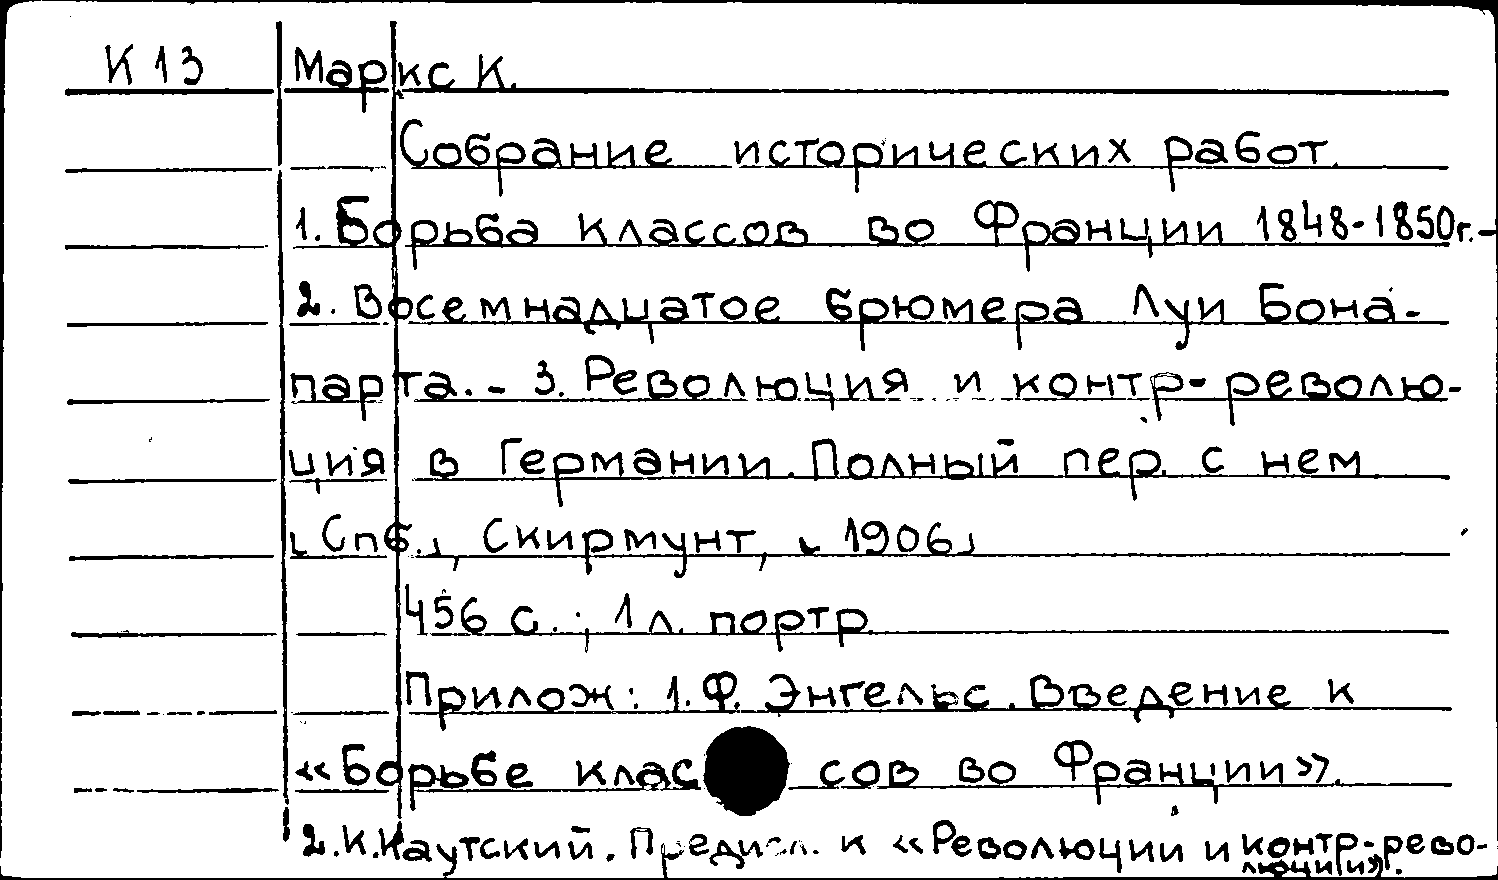 К 13 Маркс К.
Собрание исторических работ.
1. Борьба классов во Франции 1848-1850г.-
2. Восемнадцатое брюмера Луи Бона-
парта. - 3. Революция и контр-револю-
ция в Германии. Полный пер. с нем
[Спб.], Скирмунт, [1906]
456 с.; 1 л. портр.
Прилож: 1. Ф. Энгельс. Введение к
«Борьбе клас сов во Франции».
2. К. Каутский. Предисл. к «Революции и контр-рево-
люции».